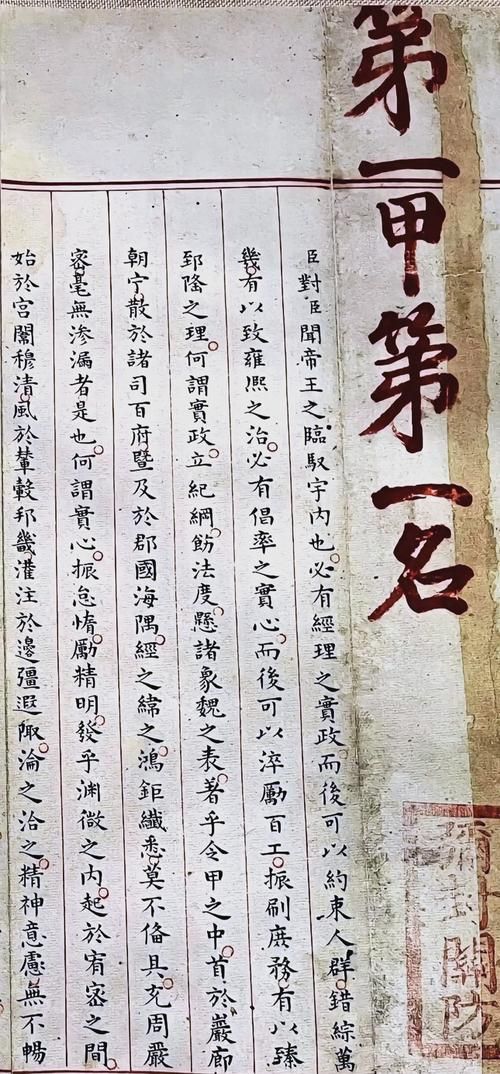 第一甲第一名
彌封關防
臣對臣聞帝王之臨馭宇内也必有經理之實政而後可以約束人群錯綜萬
幾有以致雍熙之治必有倡率之實心而後可以淬厲百工振刷庶務有以臻
郅隆之理何謂實政立紀綱飭法度懸諸象魏之表著乎令甲之中首於巖廊
朝宁散於諸司百府暨及於郡國海隅經之緯之鴻鉅纖悉莫不備具充周嚴
密毫無滲漏者是也何謂實心振怠惰厲精明發乎淵微之内起於宥密之間
始於宮闈穆清風於輦轂邦畿灌注於邊疆遐陬淪之洽之精神意慮無不暢